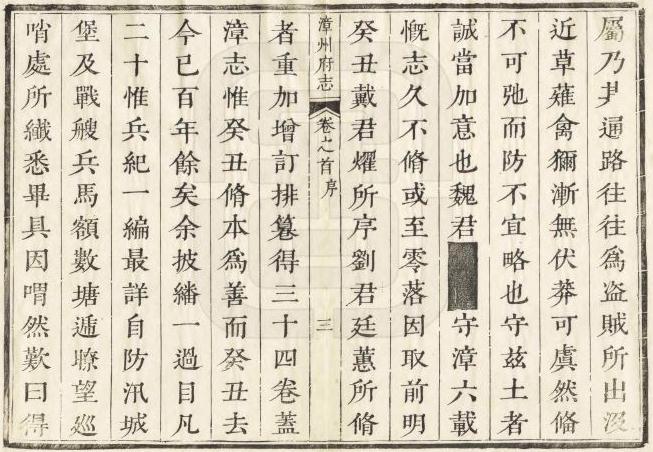 屬乃尹通路往往爲盗賊所出沒
近草薙禽獮漸無伏莽可虞然偹
不可弛而防不宜略也守兹土者
誠當加意也魏君守漳六載
慨志久不脩或至零落因取前明
癸丑戴君燿所序劉君廷蕙所脩
漳州府志 卷之首序 三
者重加增訂排纂得三十四卷蓋
漳志惟癸丑脩本爲善而癸丑去
今已百年餘矣余披繙一過目凡
二十惟兵紀一編最詳自防汛城
堡及戰艘兵馬額數塘遞瞭望廵
哨處所纖悉畢具因喟然歎曰得